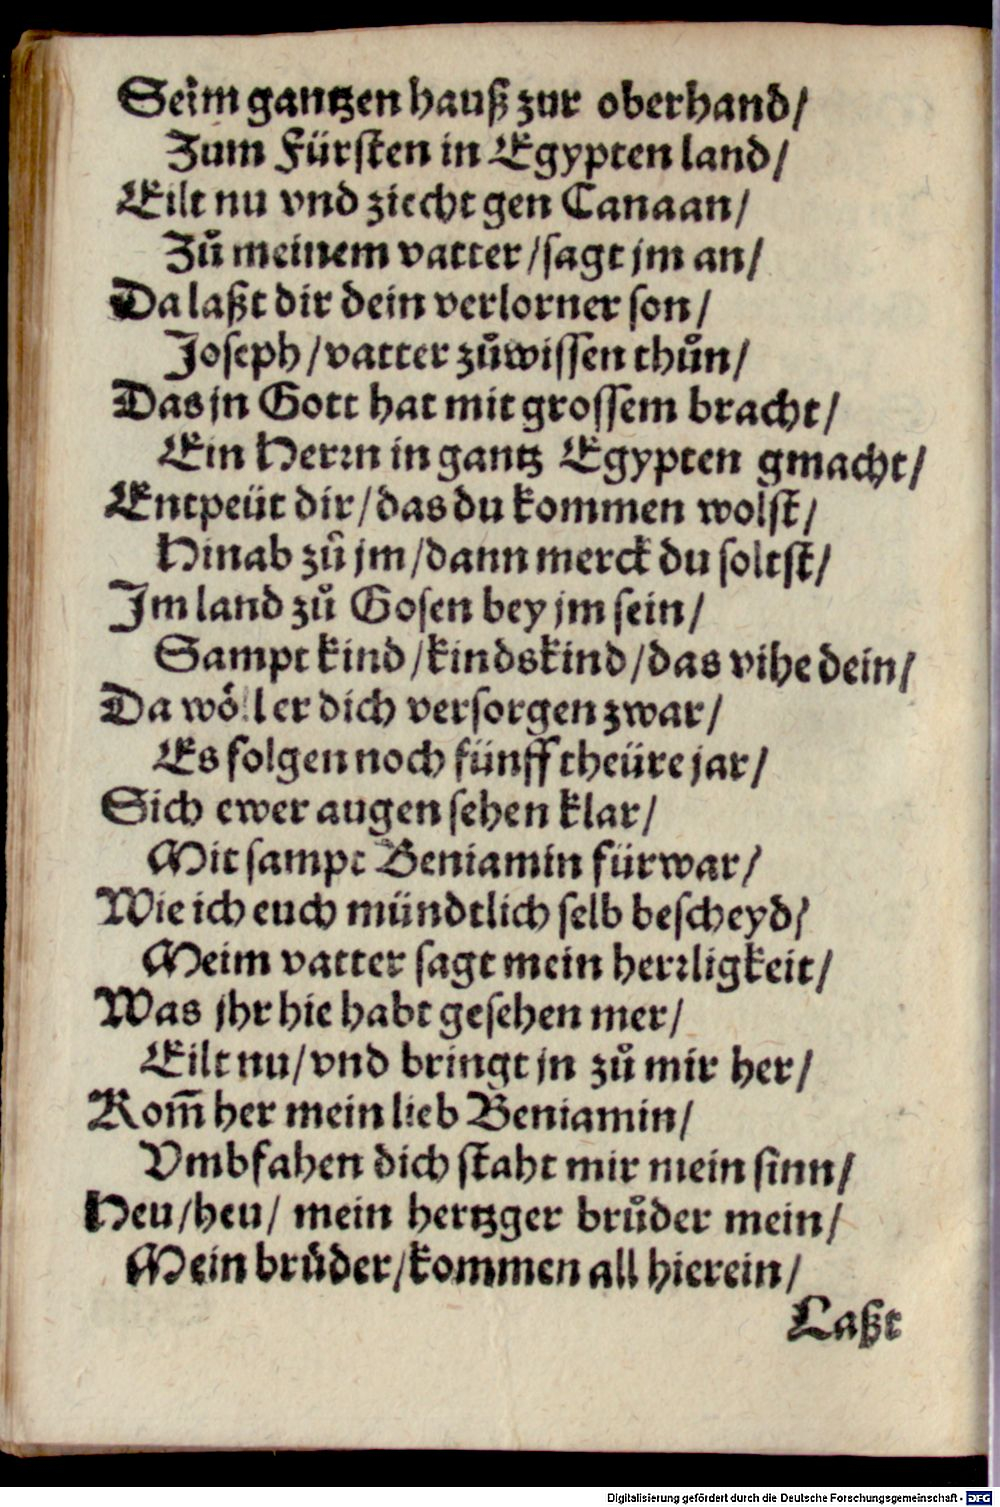 Seim gantzen hauß zur oberhand/
Zum Fürsten in Egypten land/
Eilt nu vnd ziecht gen Canaan/
Zů meinem vatter/sagt jm an/
Da laßt dir dein verlorner son/
Joseph/vatter zůwissen thůn/
Das jn Gott hat mit grossem bracht/
Ein Herrn in gantz Egypten gmacht/
Entpeüt dir/das du kommen wolst/
Hinab zů jm/dann merck du soltst/
Im land zů Gosen bey jm sein/
Sampt kind/kindskind/das vihe dein/
Da wöll er dich versorgen zwar/
Es folgen noch fünff theüre jar/
Sich ewer augen sehen klar/
Mit sampt Beniamin fürwar/
Wie ich euch mündtlich selb bescheyd/
Meim vatter sagt mein herrligkeit/
Was jhr hie habt gesehen mer/
Eilt nu/vnd bringt jn zů mir her/
Kom̃ her mein lieb Beniamin/
Vmbfahen dich staht mir mein sinn/
Heu/heu/ mein hertzger brůder mein/
Mein brůder/kommen all hierein/
Laßt
Digitalisierung gefördert durch die Deutsche Forschungsgemeinschaft - DFG